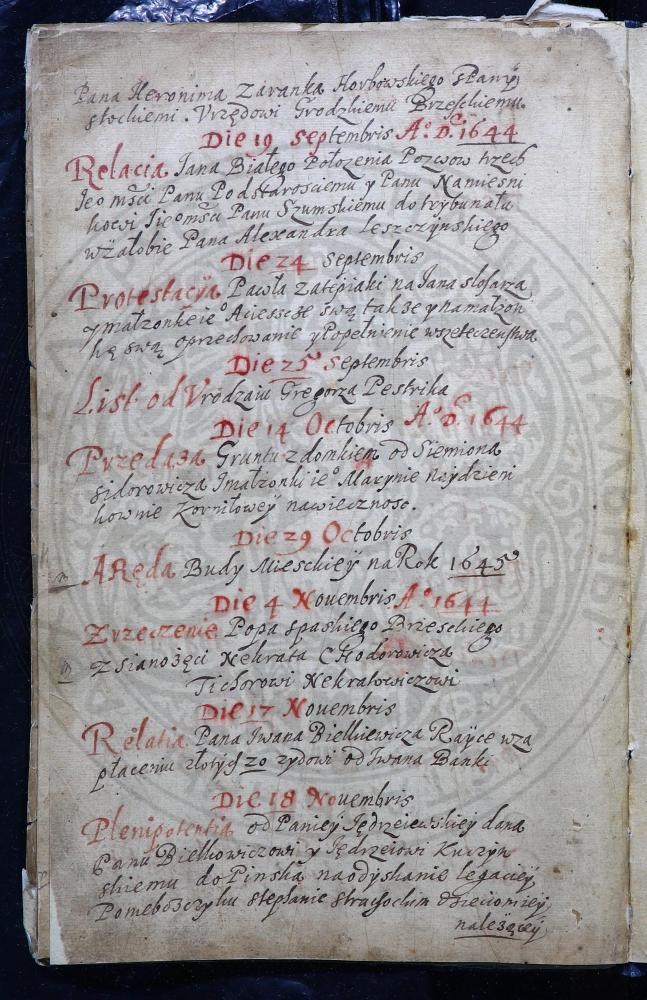 Pana Heronima Zaranka Horbowskiego
stockiemi. Vrzędowi Grodzkiemu Brzesckiemu
Die 19 Septembris A.º D. 1644
Relacia Jana Białego Położenia Pozwow trzech
Jeo mści Panu Podstarosciemu y Panu Namiesni
kowi Jieo mści Panu Szumskiemu do trybunału
wżałobie Pana Alexandra Leszczynskiego
Die 24 Septembris
Protestacÿa Pawła na Jana slosarza
y małzonkeieº swą także y namałżon
kę swą y Popełnienie wszeteczenstwa
Die 25 Septembris
List od Vrodzaiu Gregorza Pestrika
Die 14 Octobris A.º D. 1644
Przedaża Gruntu z domkiem od Siemiona
Sidorowicza Imałzonki ieº Marynie Najdzieni
hownie Korniłoweÿ nawiecznosc.
Die 29 Octobris
ARęda Budy Miesckieÿ na Rok 1645
Die 4 Nouembris A.º 1644
Zrzeczenie Popa spaskiego Brzesckiego
z sianożęci Nekrata Chodorowicza
Tichorowi Nekratowiczowi
Die 17 Nouembris
Relatia Pana Iwana Bielkiewicza Raÿce wza
płaceniu złotych 20 zydowi od Iwana Banki
Die 18 Nouembris
Plenipotentia od Panieÿ Jędrzeiewskieÿ dana
Panu Bielkowiczowi y Jędrzeiowi Kuczyn
skiemu do Pinska naodyskanie legacieÿ
Pomeboszczyku Stephanie
należąceÿ